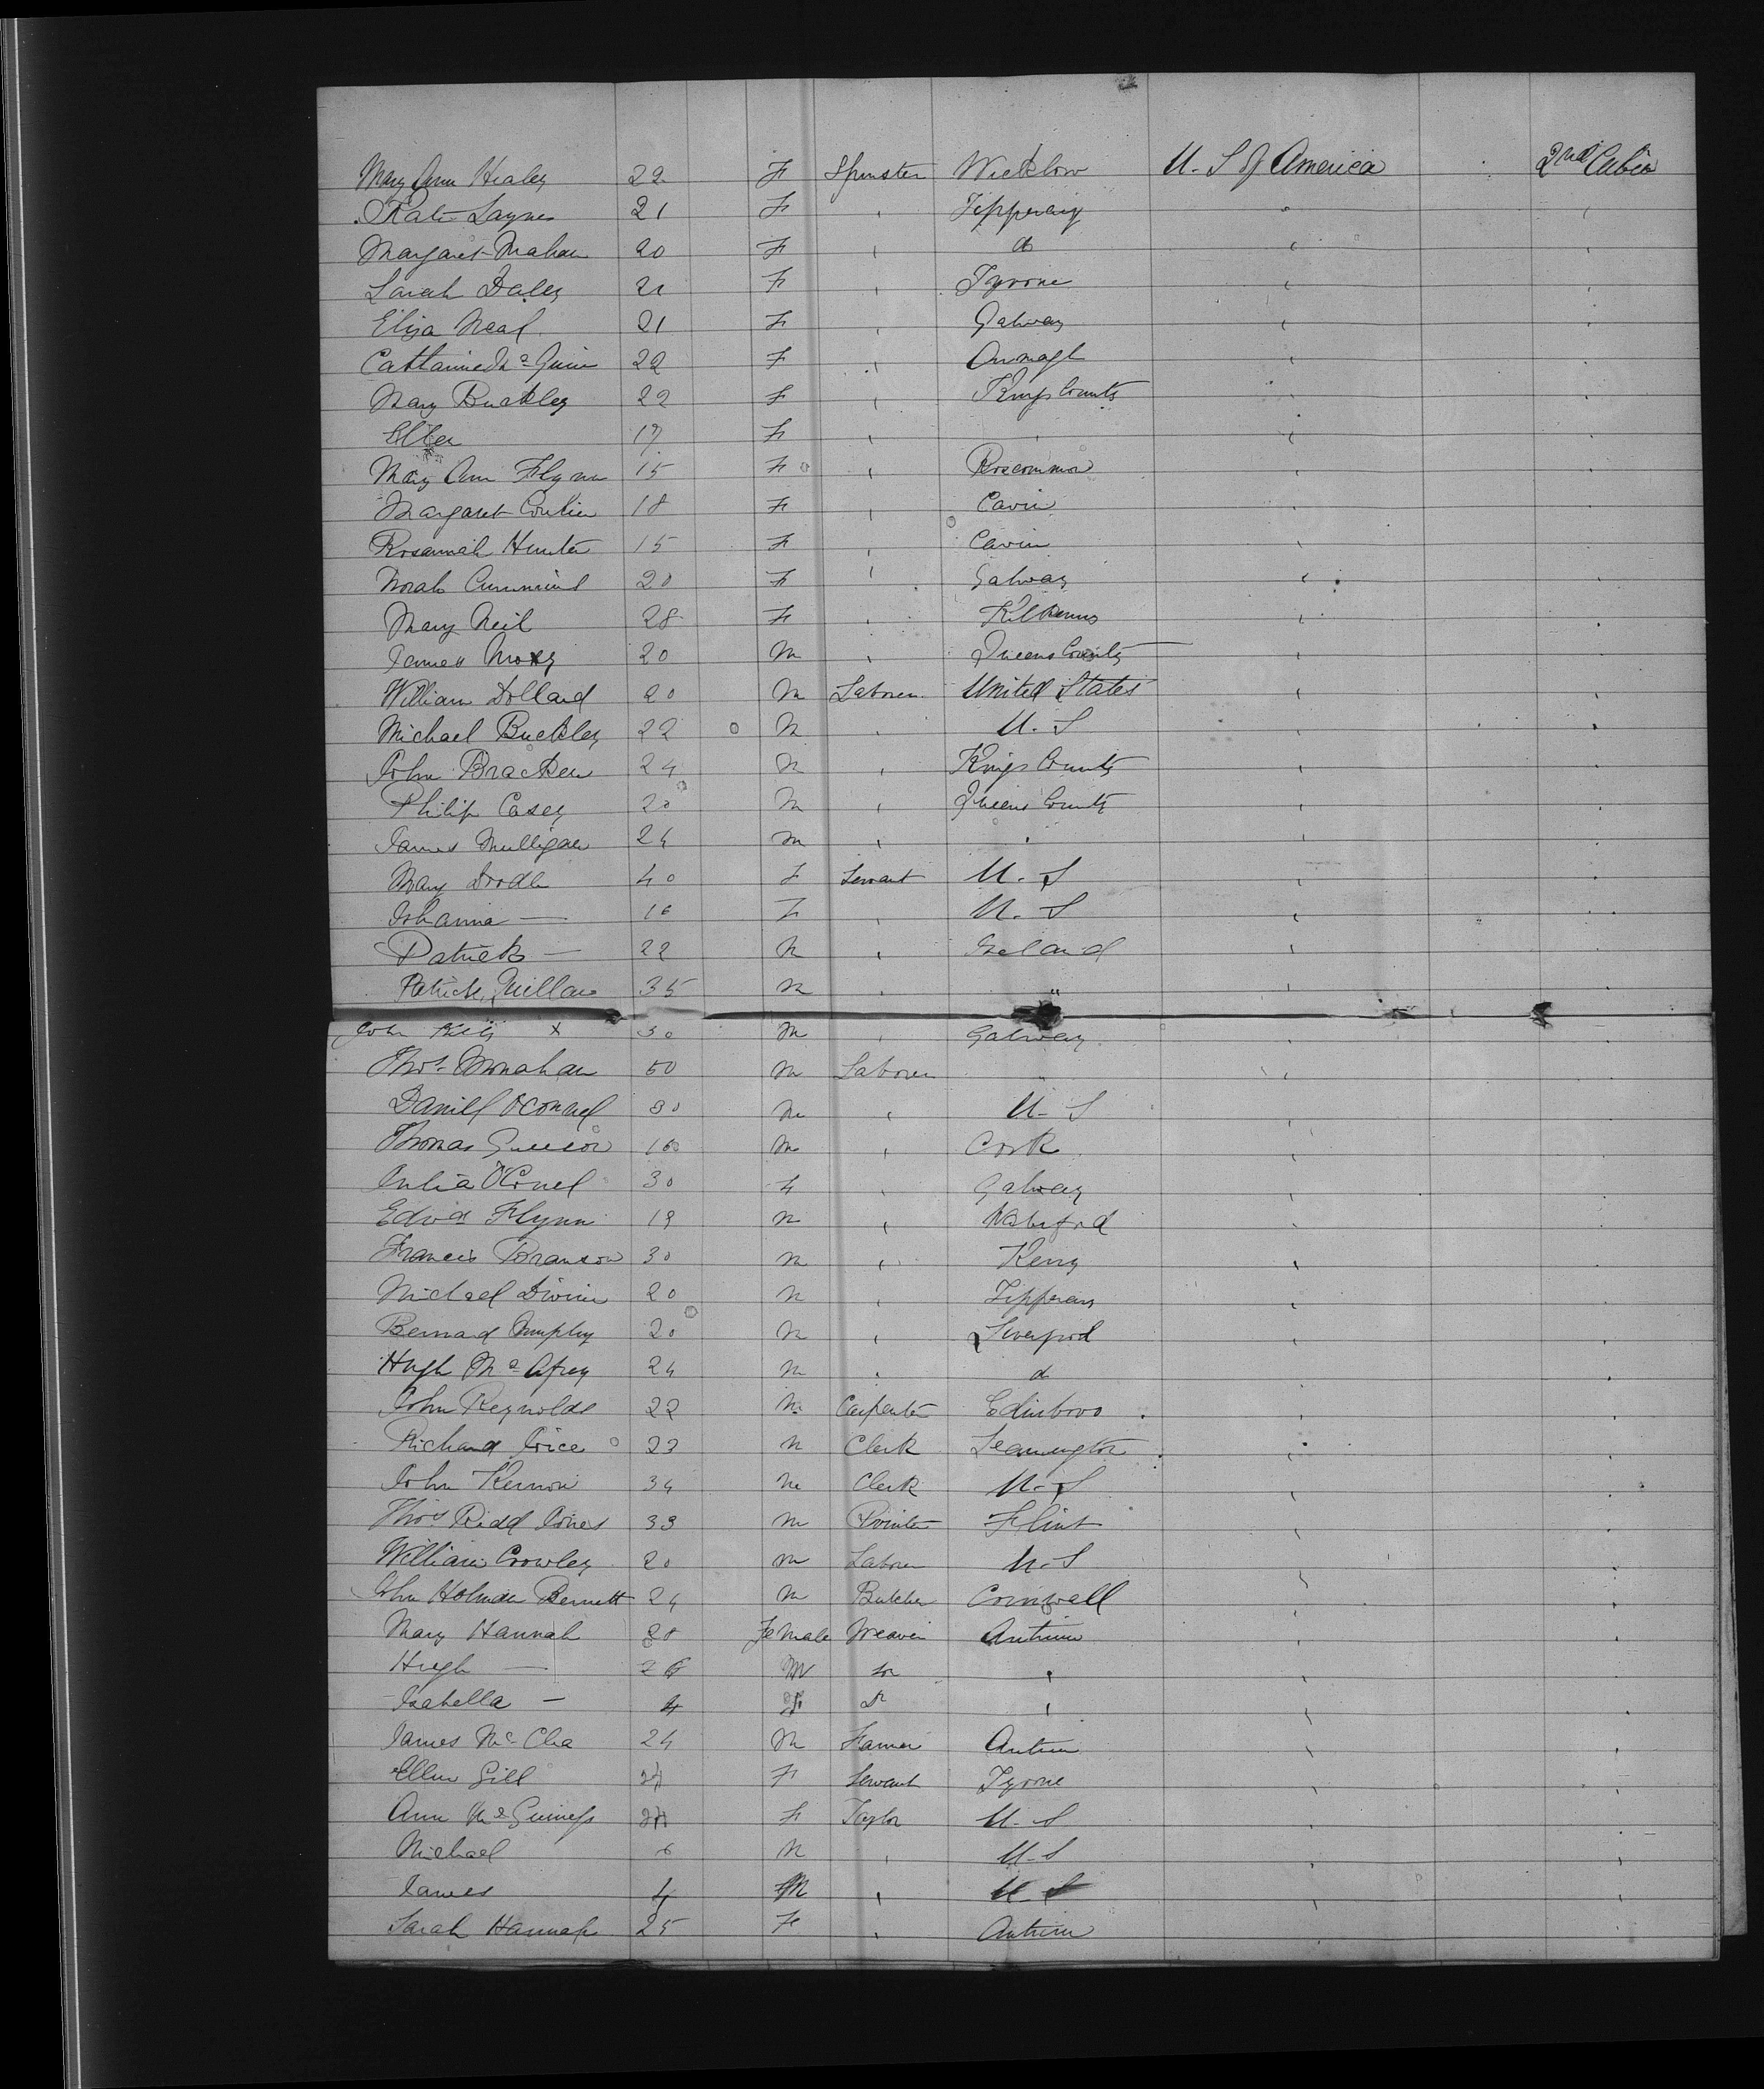 Mary Ann Healey 22 F Spinster Wicklow U. S of America 2nd Cabin
Kate 21 F " Tipperary " "
Margaret Mahan 20 F " do " "
Sarah Daley 21 F " Tyrone " "
Eliza Neal 21 F " Galway " "
Catharine 22 F " Armagh " "
Mary Buckley 22 F " Kings County " "
Ellen 17 F " " " "
Mary Ann Flynn 15 F " Roscommon " "
Margaret 18 F " Cavin " "
Rosannah Hunter 15 F " Cavin " "
Norah Cummins 20 F " Galway " "
Mary Neil 28 F " Kilkenny " "
James 20 M " Queens County " "
William Dolland 20 M Laborer United States " "
Michael Buckley 22 M " U. S " "
John Bracken 24 M " Kings County " "
Philip Casey 20 M " Queens County " "
James Mulligan 24 M " " " "
Mary 40 F Servant U. S " "
Johanna — 16 F " U. S " "
Patrick — 22 M " Ireland " "
Patrick 35 M " " "
John x 30 M " Galway "
Thos. Monahan 50 M Laborer " "
Daniel OConnel 30 M " U. S "
Thomas M " Cork "
Julia O'Conel 30 F " Galway "
Edwd Flynn 19 M " "
Francis Branson 30 M " Kerry "
Michael Divine 20 M " Tipperary " "
Bernard Murphy 20 M " Liverpool " "
Hugh 24 M " do "
John Reynolds 22 M Carpenter Edinboro " "
Richard Price M Clerk Leamington " "
John Kernon 34 M Clerk U. S " "
Thos Ridd Jones 33 M Printer Flint " "
William Crowley 20 M Laborer U. S " "
John Holman Bennett 24 M Butcher Cornwall " "
Mary Hannah Female Weaver Antrim " "
Hugh — M " "
Isabella — 4 F " "
James 24 M Farmer Antrim " "
Ellen Gill F Servant Tyrone " "
Ann McGuiness F Taylor U. S " "
Michael 6 M " U. S " "
James 4 M " U S " "
Sarah Hannah 25 F " Antrim " "